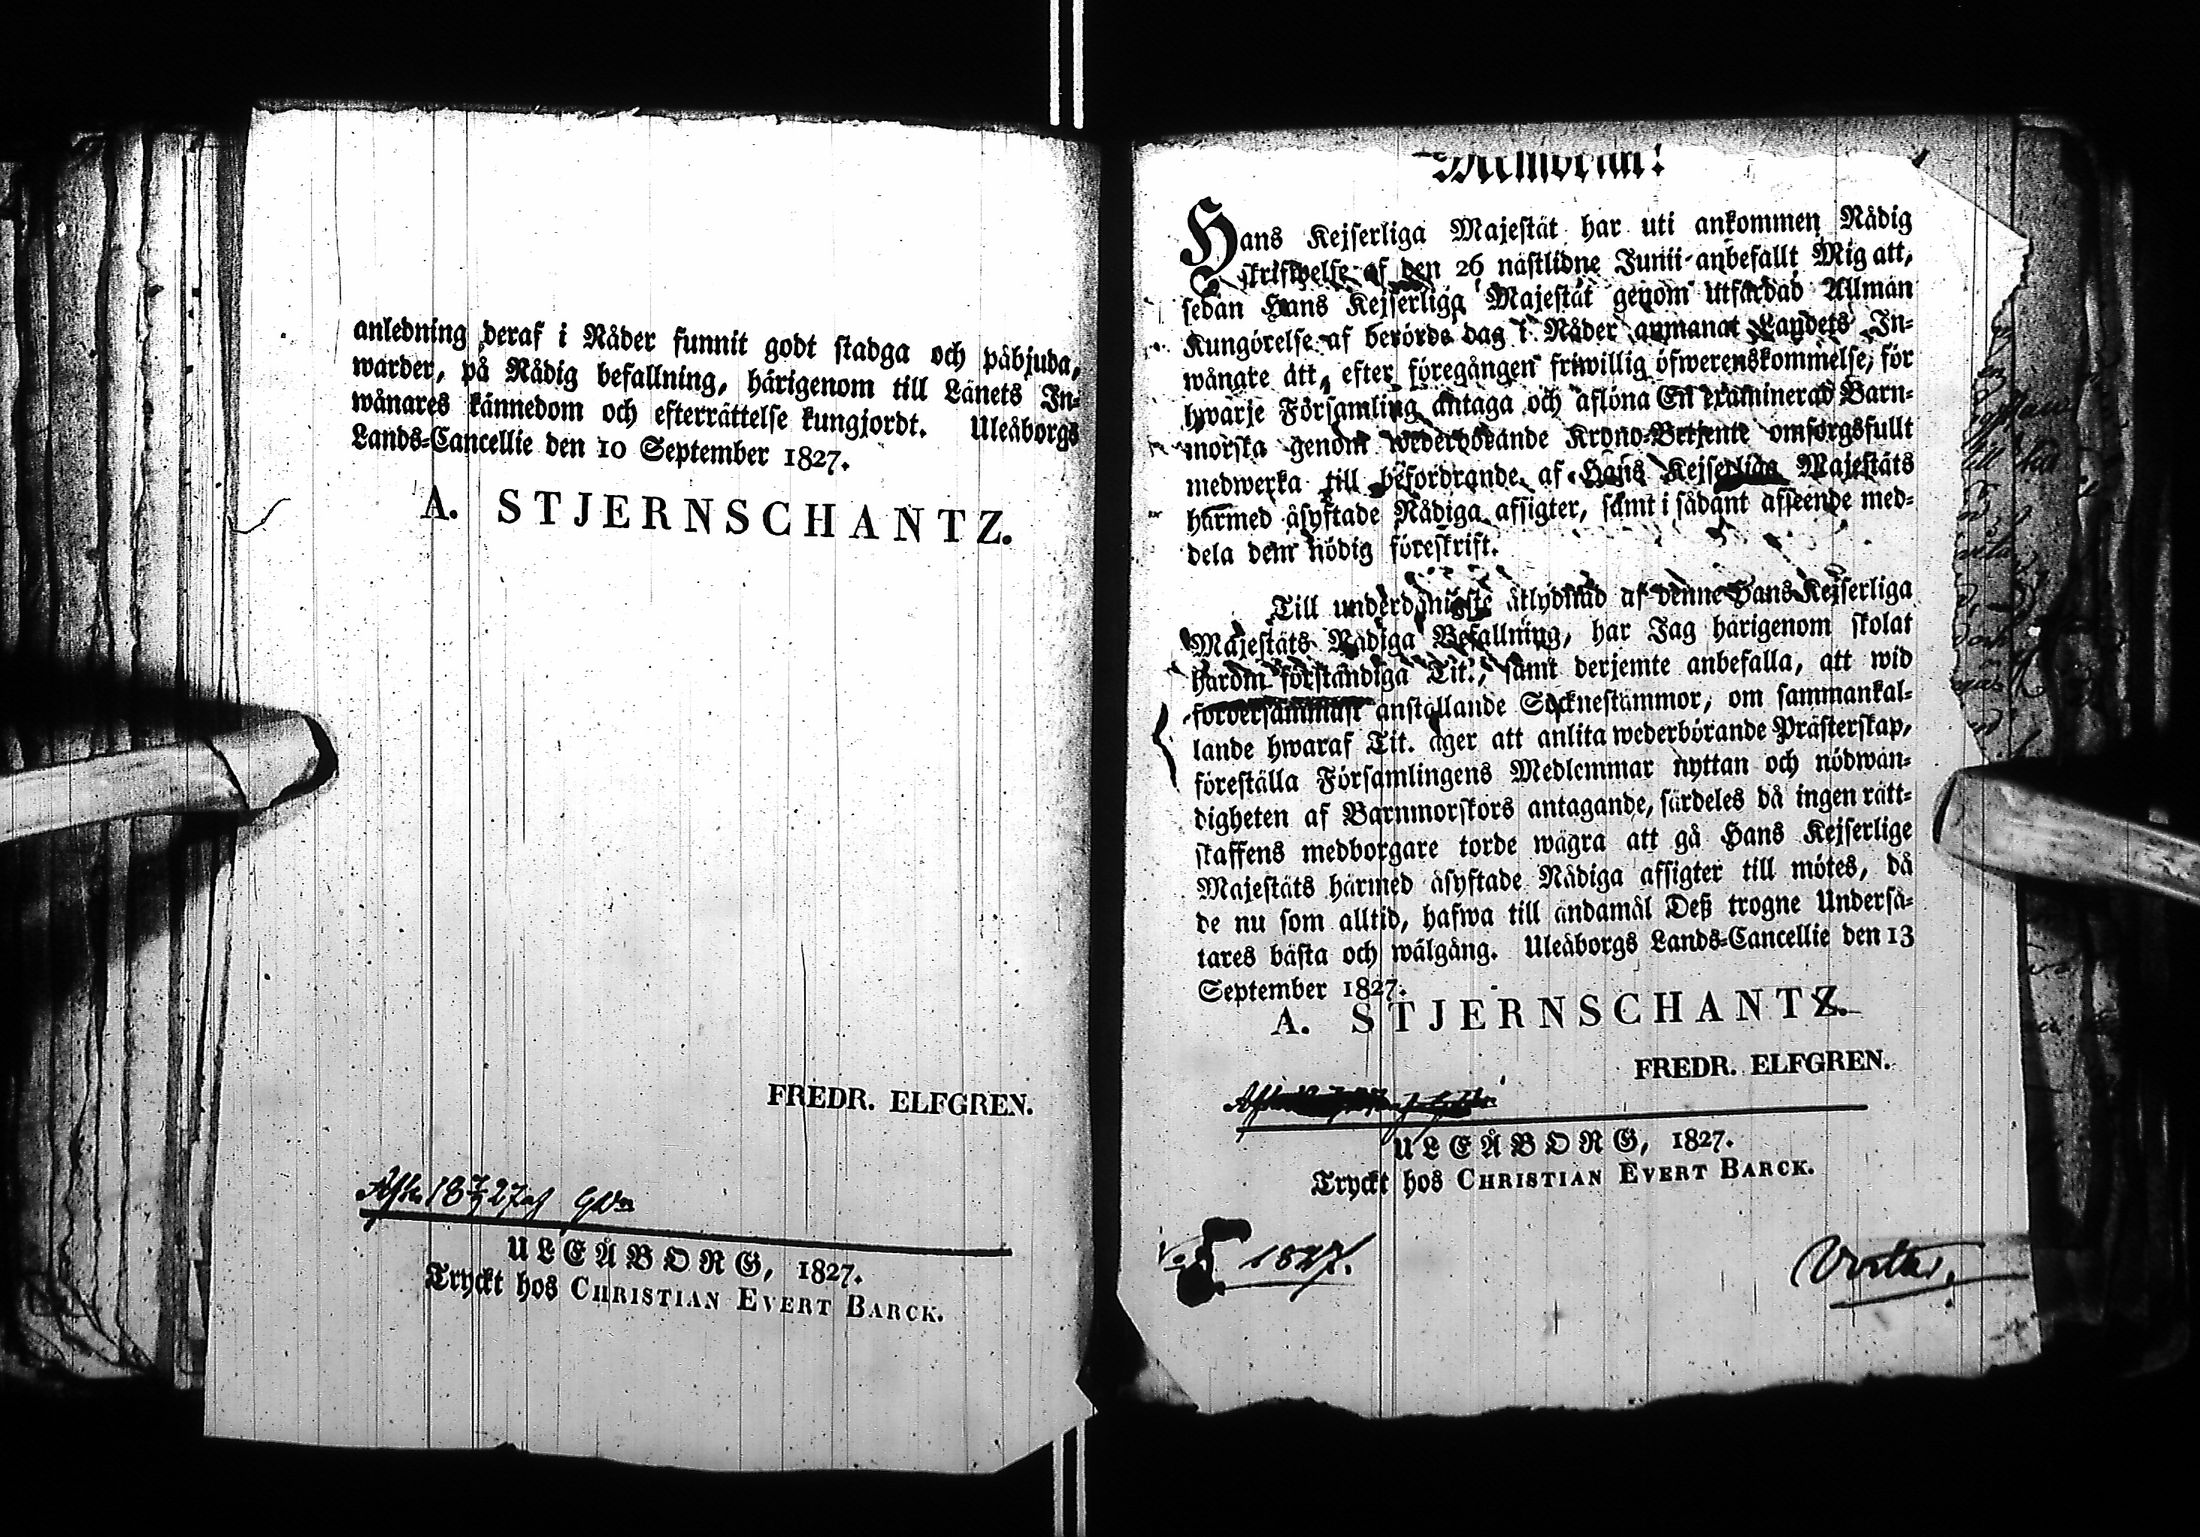 anledning deraf i Nåder funnit godt stadga och påbjuda,
warder, på Nådig befallning, härigenom till Länets In-
wånares kännedom och efterrättelse kungjordt. Uleåborgs
Lands-Cancellie den 10 September 1827.
A. STJERNSCHANTZ.
FREDR. ELFGREN.
ULEÅBORG, 1827.
Tryckt hos CHRISTIAN EVERT BARCK.
Hans Kejserliga Majestät har uti ankommen Nådig
skrifwelse af den 26 nästlidne Junii anbefallt Mig att,
sedan Hans Kejserliga Majestät genom utfärdad Allmän
Kungörelse af berörde dag i Nåder anmanat Landets In-
wånare att, efter föregången friwillig öfwerenskommelse, för
hwarje Församling antaga och aflöna En examinerad Barn-
morska genom wederbörande Krono-Betjente omsorgsfullt
medwerka till befordrande af Hans Kejserliga Majestäts
härmed åsyftade Nådiga afsigter, samt i sådant afseende med-
dela dem nödig föreskrift.
Till underdånigste åtlydnad af denne Hans Kejserliga
Majestäts Nådiga Befallning, har Jag härigenom skolat
härom förständiga Tit., samt derjemte anbefalla, att wid
fordersammast anställande Socknestämmor, om sammankal-
lande hwaraf Tit. äger att anlita wederbörande Prästerskap,
föreställa Församlingens Medlemmar nyttan och nödwän-
digheten af Barnmorskors antagande, särdeles då ingen rätt-
skaffens medborgare torde wägra att gå Hans Kejserlige
Majestäts härmed åsyftade Nådiga afsigter till mötes, då
de nu som alltid, hafwa till ändamål Deß trogne Underså-
tares bästa och wälgång. Uleåborgs Lands-Cancellie den 13
September 1827.
A. STJERNSCHANTZ.
FREDR. ELFGREN.
ULEÅBORG, 1827.
Tryckt hos CHRISTIAN EVERT BARCK.
1827.